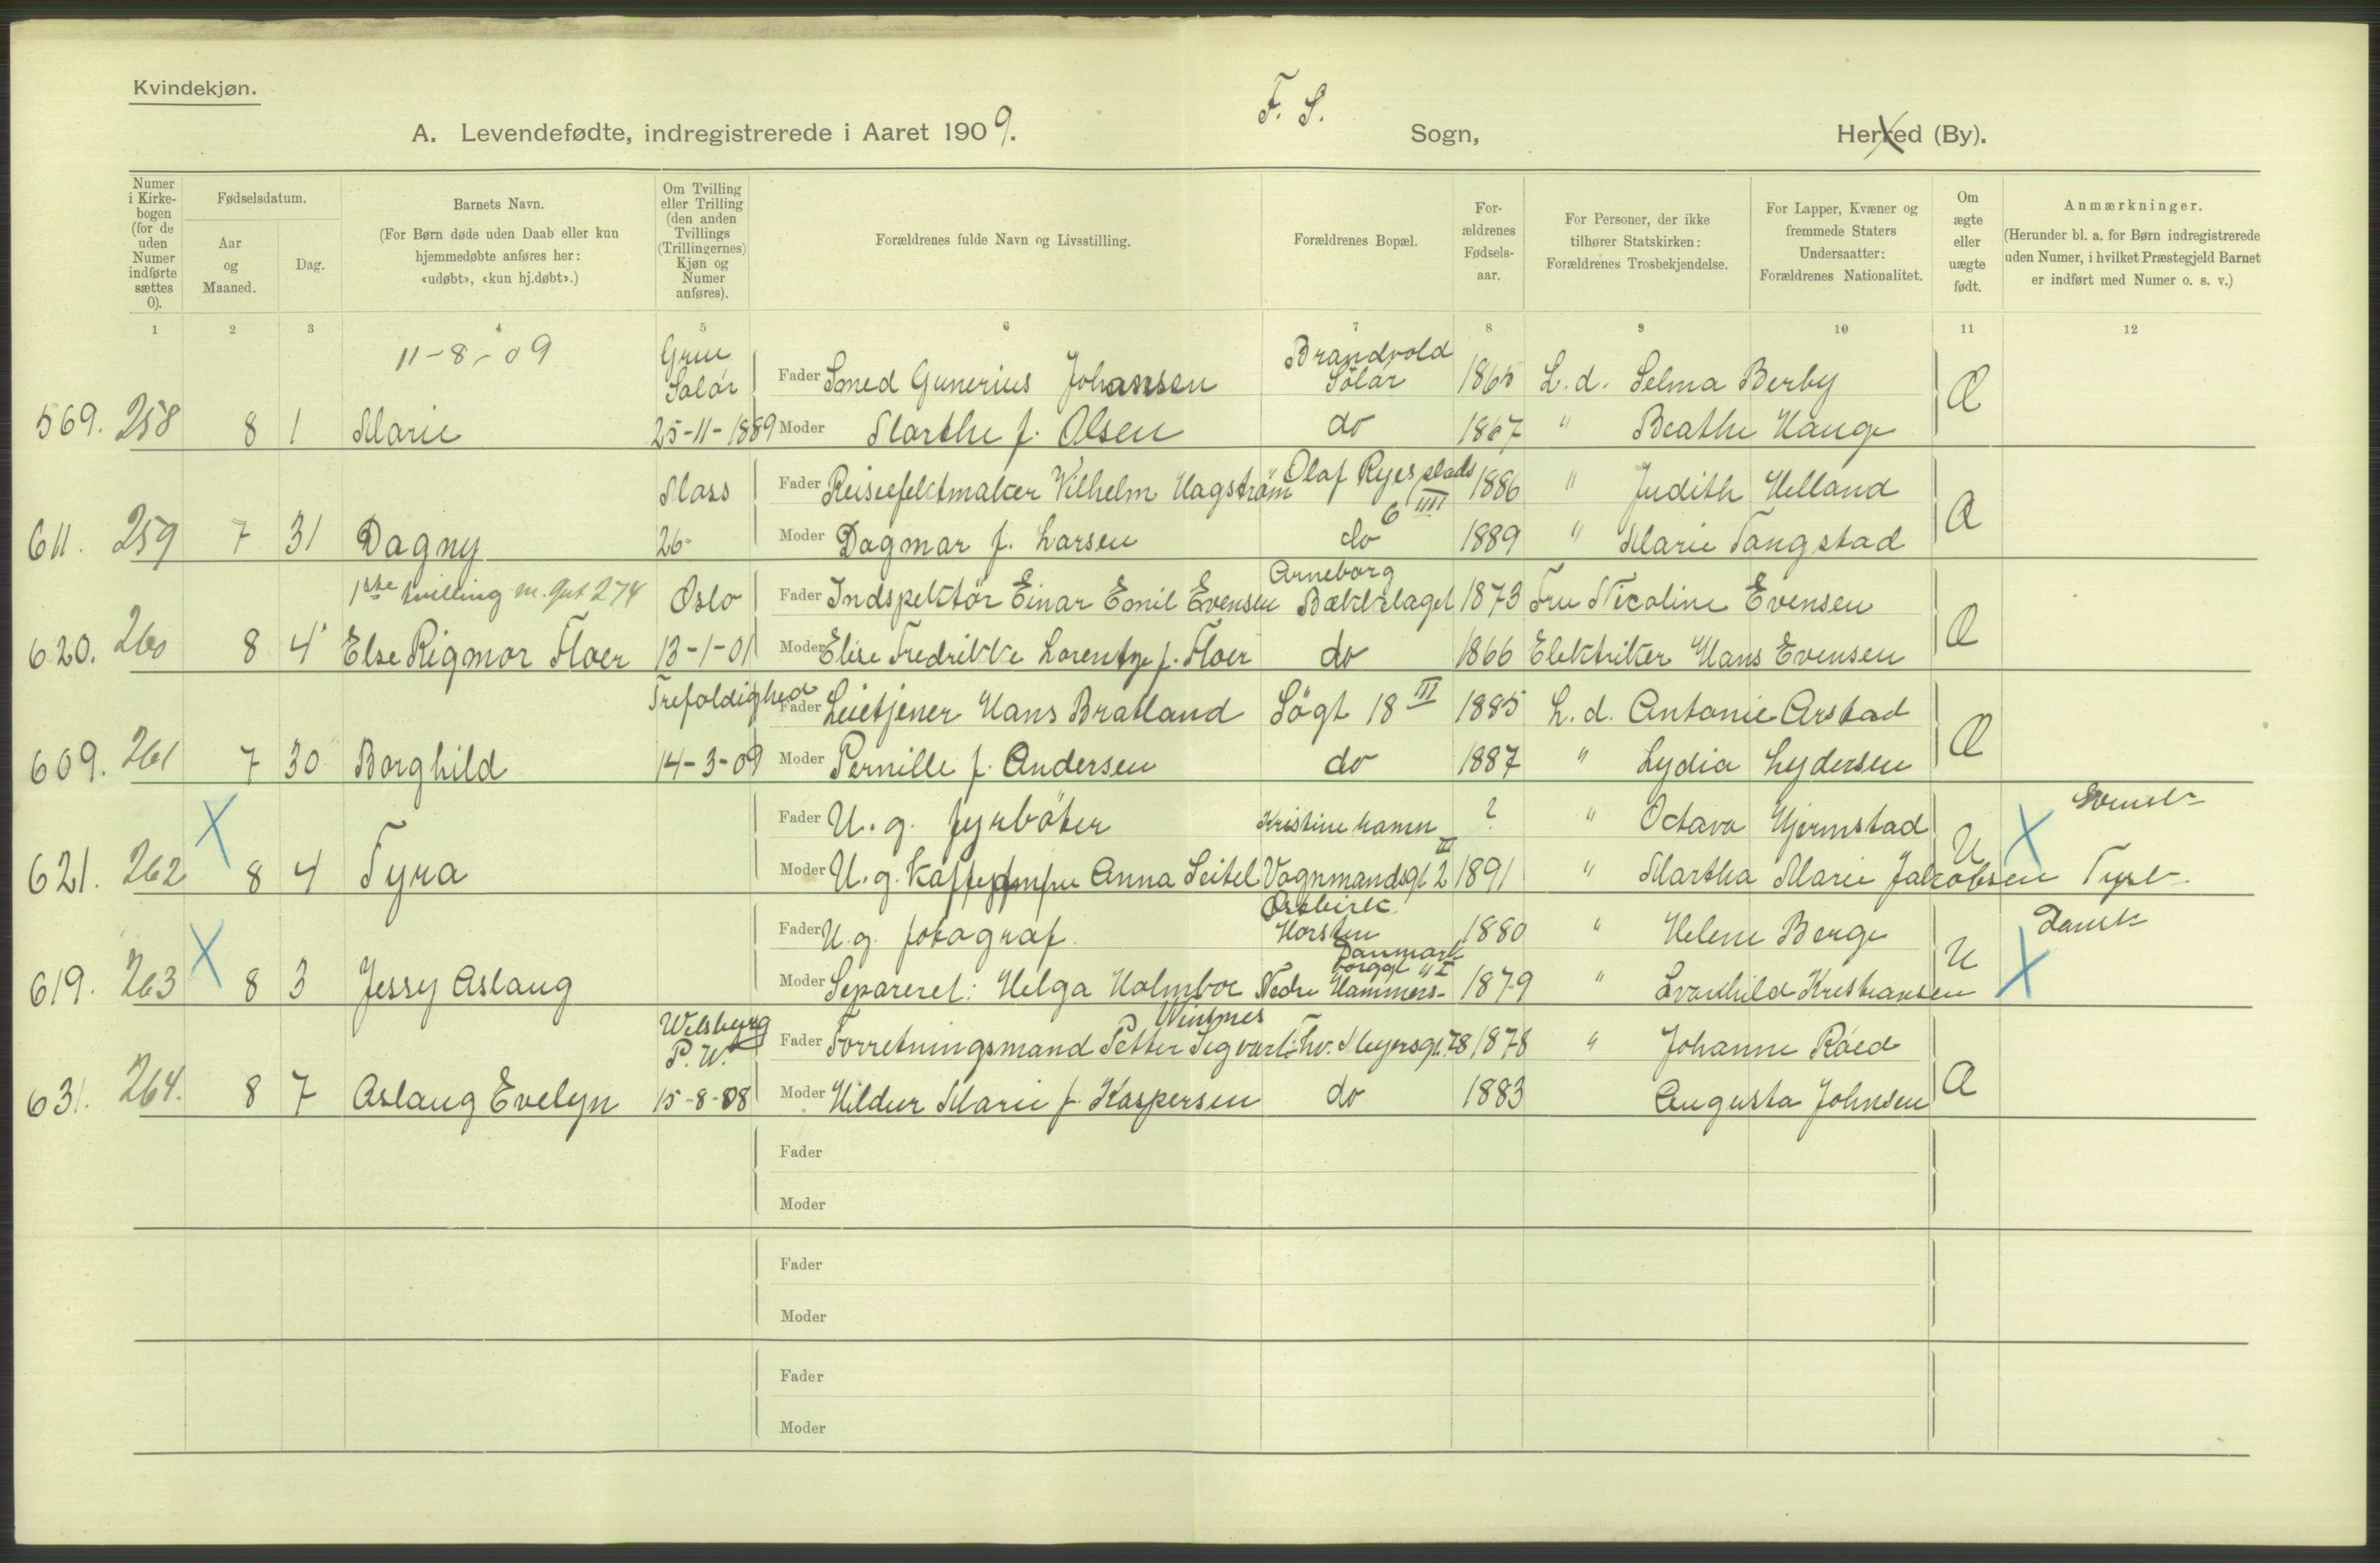 Kvindekjøn.
F. S.
A. Levendefødte, indregistrerede i Aaret 1909. Sogn, Herred (By).
Numer i Kirkebogen (for de uden Numer indførte sættes 0).
Fødselsdatum.
Aar og Maaned.
Dag.
Barnets Navn.
(For Børn døde uden Daab eller kun hjemmedøbte anføres her: «udøbt», «kun hj.døbt».)
Om Tvilling eller Trilling (den anden Tvillings (Trillingernes) Kjøn og Numer anføres).
Forældrenes fulde Navn og Livsstilling.
Forældrenes Bopæl.
Forældrenes Fødselsaar.
For Personer, der ikke tilhører Statskirken: Forældrenes Trosbekjendelse.
For Lapper, Kvæner og fremmede Staters Undersaatter: Forældrenes Nationalitet.
Om ægte eller uægte født.
Anmærkninger.
(Herunder bl. a. for Børn indregistrerede uden Numer, i hvilket Præstegjeld Barnet er indført med Numer o. s. v.)
1 2 3 4 5 6 7 8 9 10 11 12
11-8-09 Grue Brandvold
Solør Fader Smed Gunerius Johansen Sölör 1865 L. d. Selma Berby Æ
569. 258 8 1 Marie 25-11-1889 Moder Marthe f. Olsen do 1867 " Beathe Hauge
Moss Fader Reiseefektmaker Vilhelm Hagström Olaf Ryes plads 1886 " Judith Helland Æ
6 IIII
611. 259 7 31 Dagny 26- Moder Dagmar f. Larsen do 1889 " Marie Tangstad
Arneborg
1ste tvilling m. gut 274 Oslo Fader Indspektör Einar Emil Evensen Bækkelaget 1873 Fru Nicoline Evensen Æ
620. 260 8 4 Else Rigmor Floer 13-1-01 Moder Elise Fredrikke Lorentze f. Floer do 1866 Elektriker Hans Evensen
Trefoldighed Fader Leietjener Hans Bratland Søgt 18 III 1885 L. d. Antonie Arstad Æ
609. 261 7 30 Borghild 14-3-09 Moder Pernille f. Andersen do 1887 " Lydia Lydersen
X Fader U. g. fyrböter Kristinehamn ? " Octava Hjermstad U X Svensk
621. 262 8 4 Tyra Moder U. g. Anna Seitel Vognmandsgt 2 III 1891 " Martha Marie Jakobsen Tysk
X Fader U. g. fotograf. Horsten Danmark 1880 " Helene Berge U X Dansk
619. 263 8 3 Jessy Aslaug Moder Separeret: Helga Holmboe Nedre Hammersborggt 1879 " Kristiansen
P. W. Fader Forretningsmand Petter Segvart Thv. Meyersgt. 78 1878 " Johanne Röed Æ
631. 264. 8 7 Aslaug Evelyn 15-8-08 Moder Hildur Marie f. Kaspersen do 1883 Augusta Johnsen
Fader
Moder
Fader
Moder
Fader
Moder